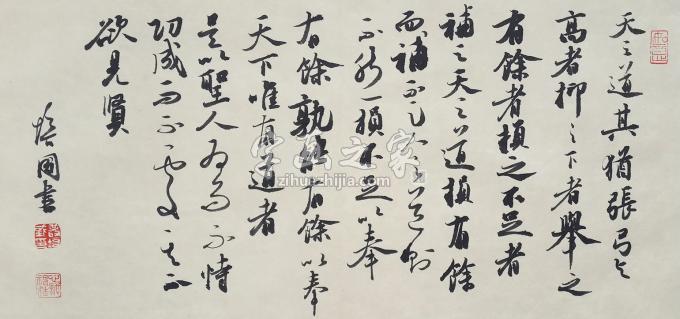 天之道其猶張弓与
高者抑之下者舉之
有餘者損之不足者
補之天之道損有餘
而補不足人之道則
不然損不足以奉
有餘孰能有餘以奉
天下唯有道者
是以聖人為而不恃
功成而不處其不
欲見賢
培國書
字画之家
zihuazhijia.com